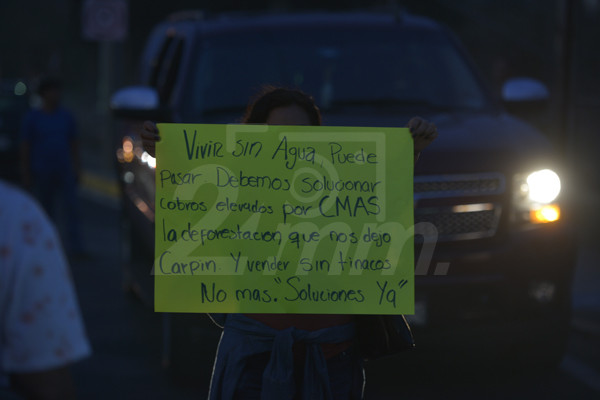 Vivir sin Agua Puede
Pasar Debemos solucionar
cobros elevados por CMAS
la deforestacion que nos dejo
Carpin. Y vender sin tinacos
No mas. "Soluciones Ya"
mm.